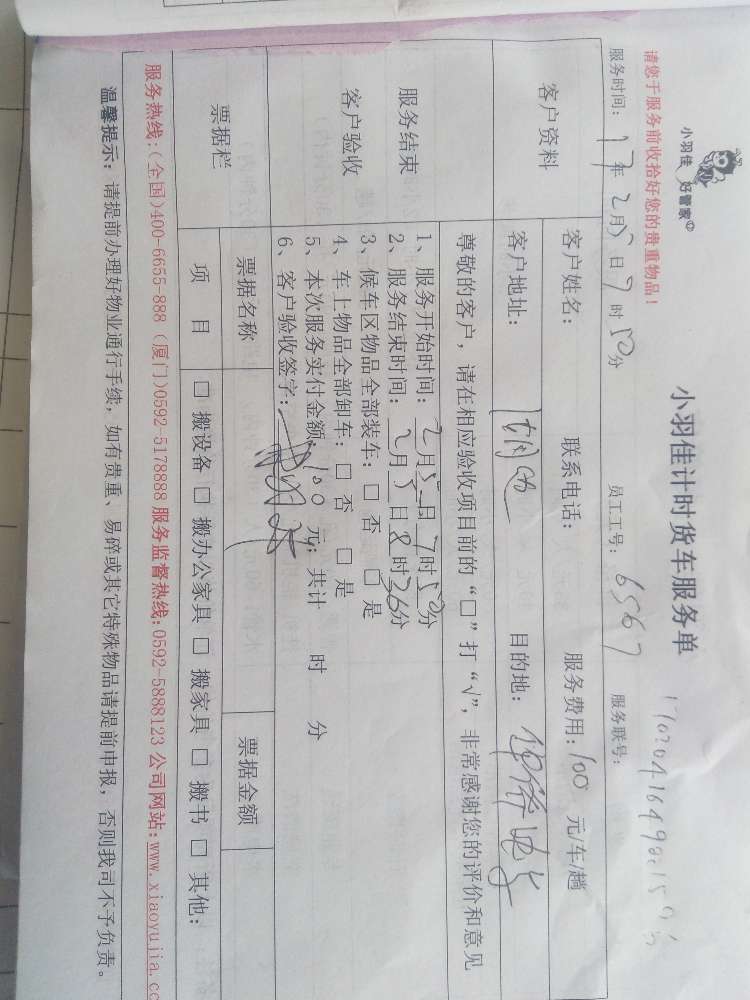 小羽佳 好管家
小羽佳计时货车服务单
请您于服务前收拾好您的贵重物品!
服务时间: 17年2月5日7时50分 员工工号: 6567 服务联号:
客户资料
客户姓名: 联系电话: 服务费用:100 元/车/趟
客户地址: 目的地:
服务结束
客户验收
尊敬的客户,请在相应验收项目前的“□”打“√”,非常感谢您的评价和意见
1、服务开始时间:2月5日7时50分
2、服务结束时间:2月5日8时36分
3、候车区物品全部装车:□ 否 □ 是
4、车上物品全部卸车:□ 否 □ 是
5、本次服务实付金额:100 元;共计 时 分
6、客户验收签字:
票据栏
票据名称 票据金额
项 目 □ 搬设备 □ 搬办公家具 □ 搬家具 □ 搬书 □ 其他:
服务热线:(全国)400-6655-888 (厦门)0592-5178888 服务监督热线:0592-5888123 公司网站:www.xiaoyujia.co
温馨提示:请提前办理好物业通行手续,如有贵重、易碎或其它特殊物品请提前申报,否则我司不予负责。